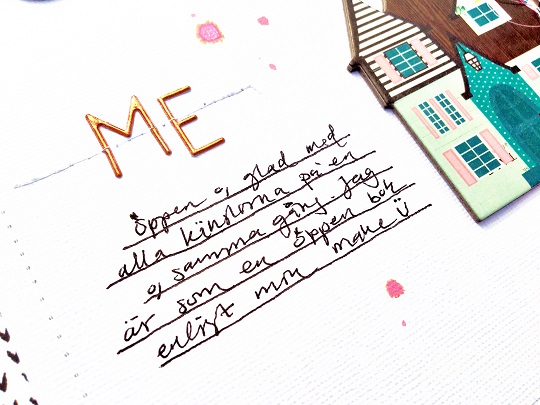 ME
öppen & glad med
alla känslorna på en
& samma gång. Jag
är som en öppen bok
enligt min make ü